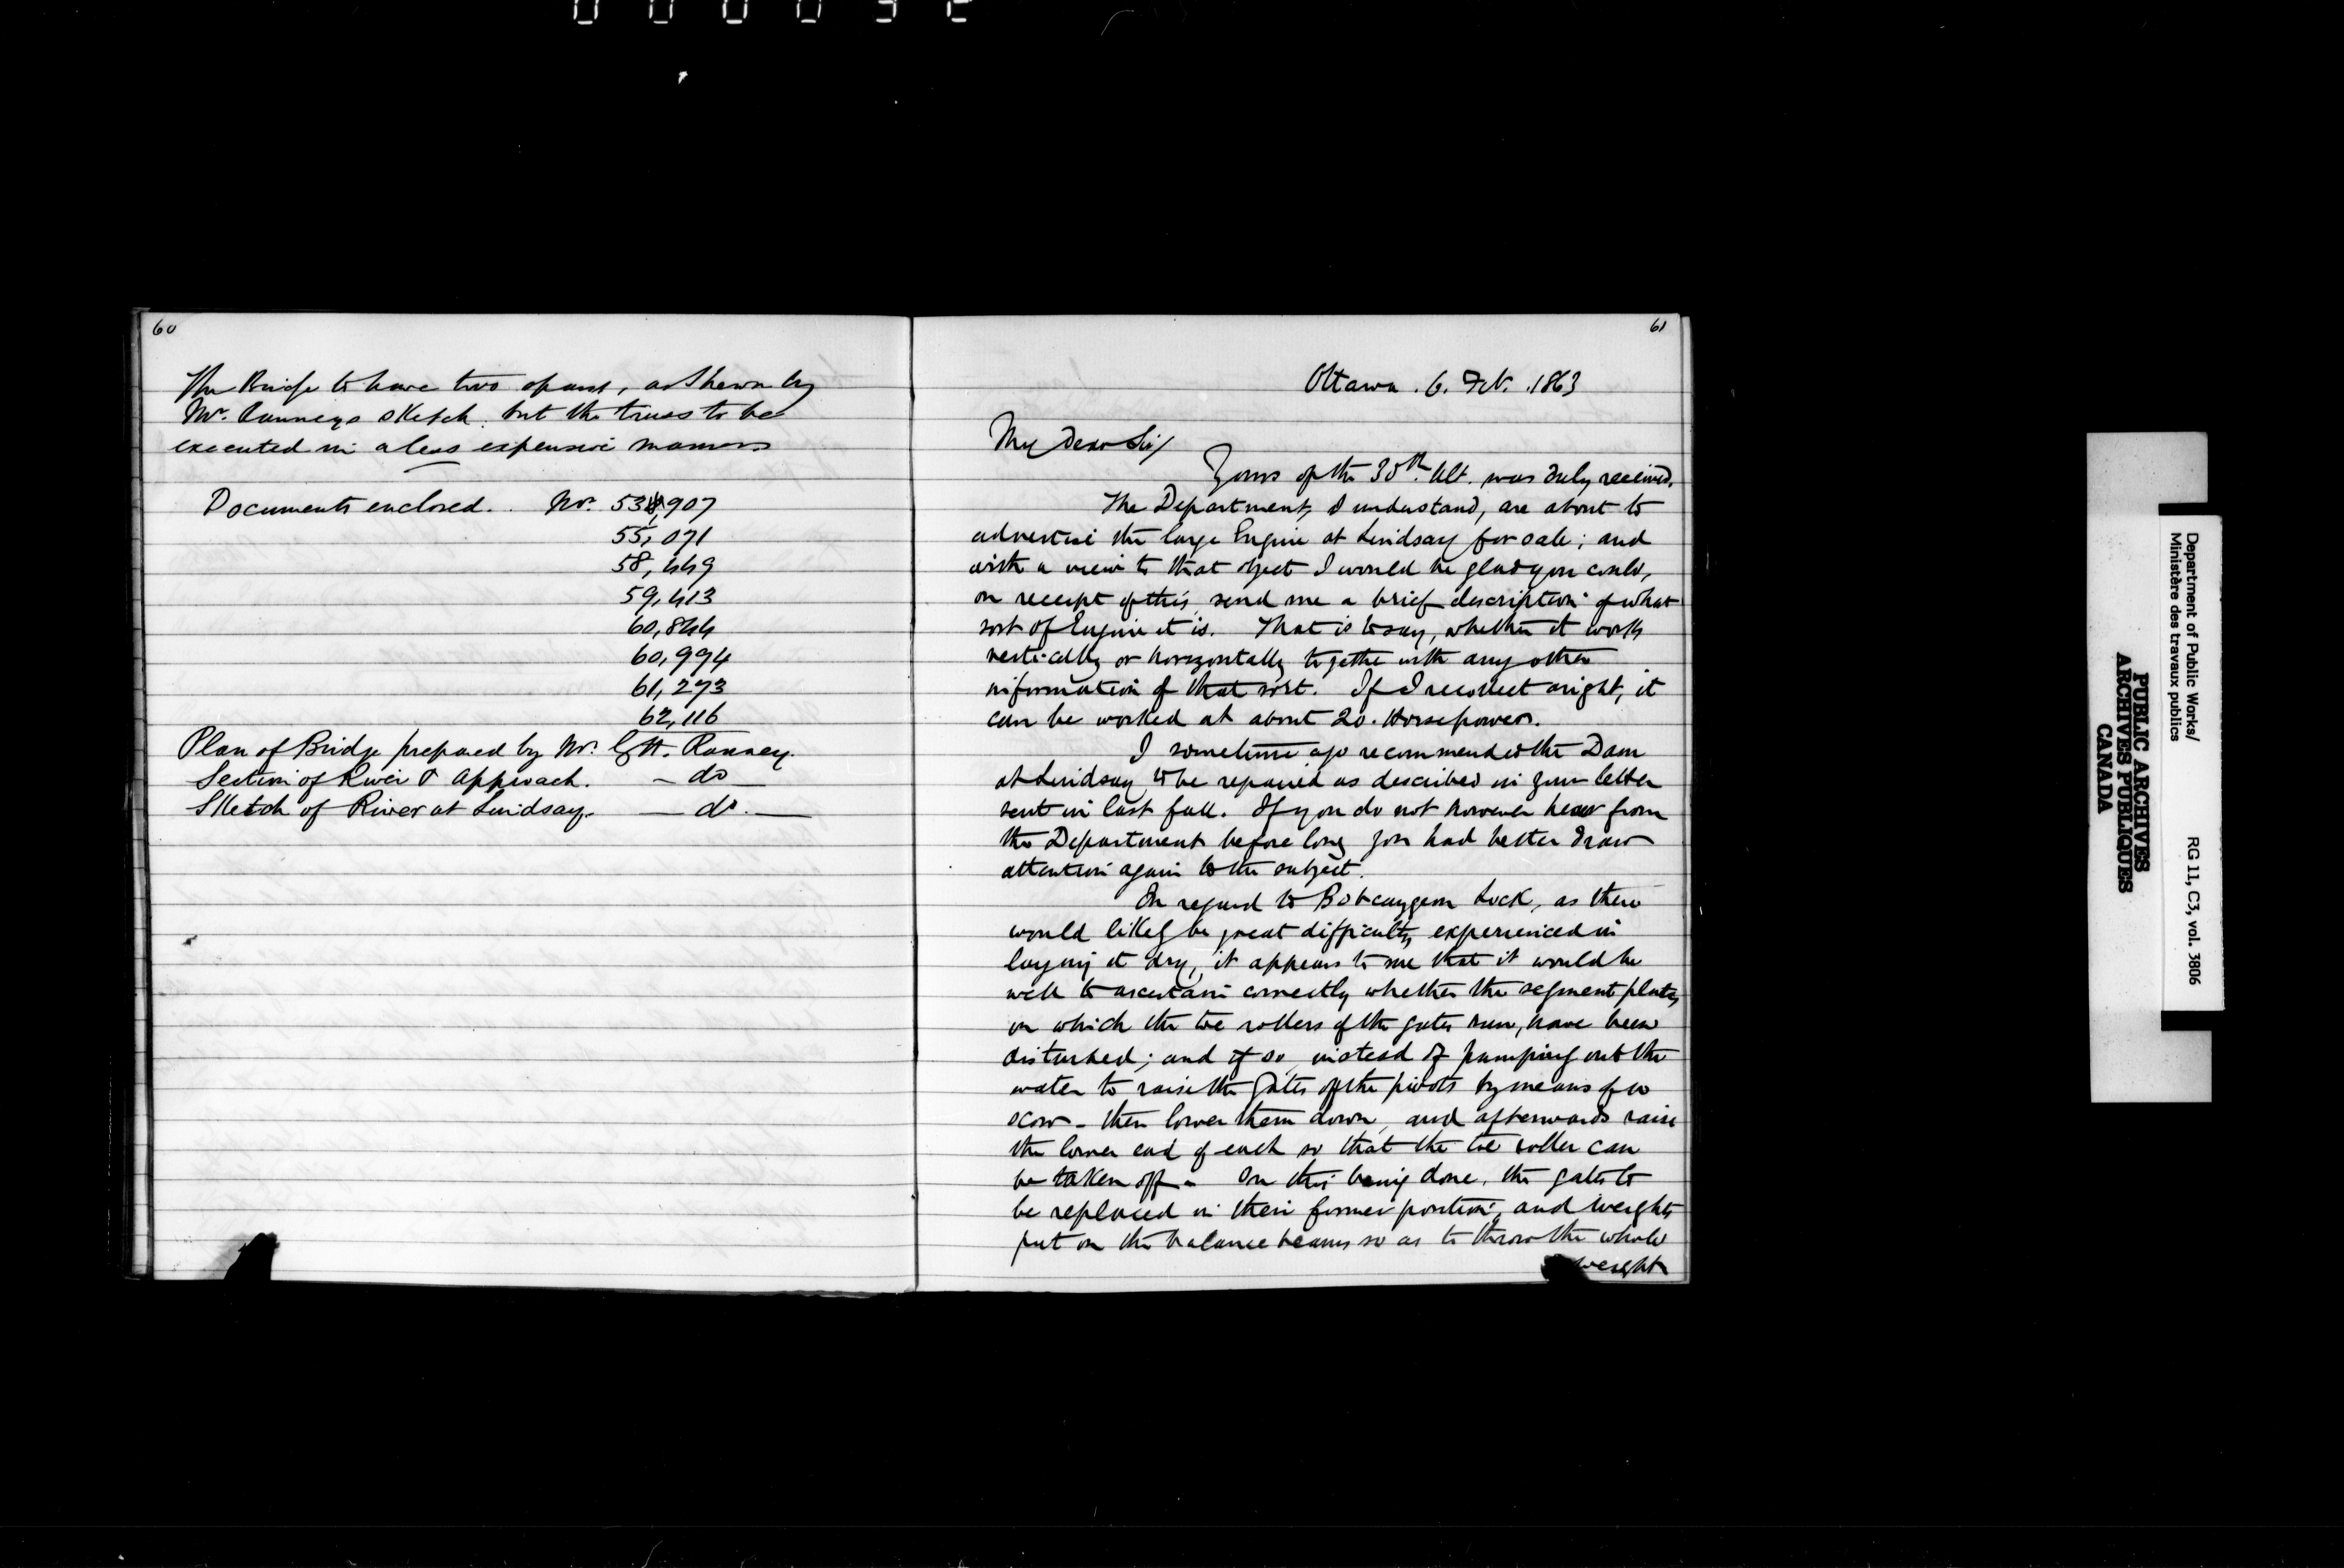 000032
60
The Bridge to have two spans, as shewn by
Mr. Ranneys sketch. but the truss to be
executed in a less expensive manner
Documents enclosed. . No. 53,907
55,071
58,449
59,413
60,844
60,994
61,273
62,116
Plan of Bridge prepared by Mr. G H. Ranney.
Section of River & approach. — do —
Sketch of River at Lindsay. — do. —
61
Ottawa . 6. Feb. . 1863
My Dear Sir/
Yours of the 30th. Ult. was duly received.
The Department, I understand, are about to
advertise the large Engine at Lindsay for sale; and
with a view to that object I would be glad you could,
on receipt of this, send me a brief description of what
sort of Engine it is. That is to say, whether it works
vertically or horizontally together with any other
information of that sort. If I recollect aright, it
can be worked at about 20. Horsepower.
I sometime ago recommended the Dam
at Lindsay to be repaired as described in your letter
sent in last fall. If you do not however hear from
the Department before long you had better draw
attention again to the subject.
In regard to Bobcaygeon Lock, as there
would likely be great difficulty experienced in
laying it dry, it appears to me that it would be
well to ascertain correctly whether the segment plates,
on which the toe rollers of the gates run, have been
disturbed; and if so, instead of pumping out the
water to raise the Gates off the pivots by means of a
scow - then lower them down, and afterwards raise
the lower end of each so that the toe roller can
be taken off - On this being done, the gates to
be replaced in their former position, and weights
put on the balance beams so as to throw the whole
weight
Department of Public Works/
Ministère des travaux publics
RG 11, C3, vol. 3806
PUBLIC ARCHIVES
ARCHIVES PUBLIQUES
CANADA